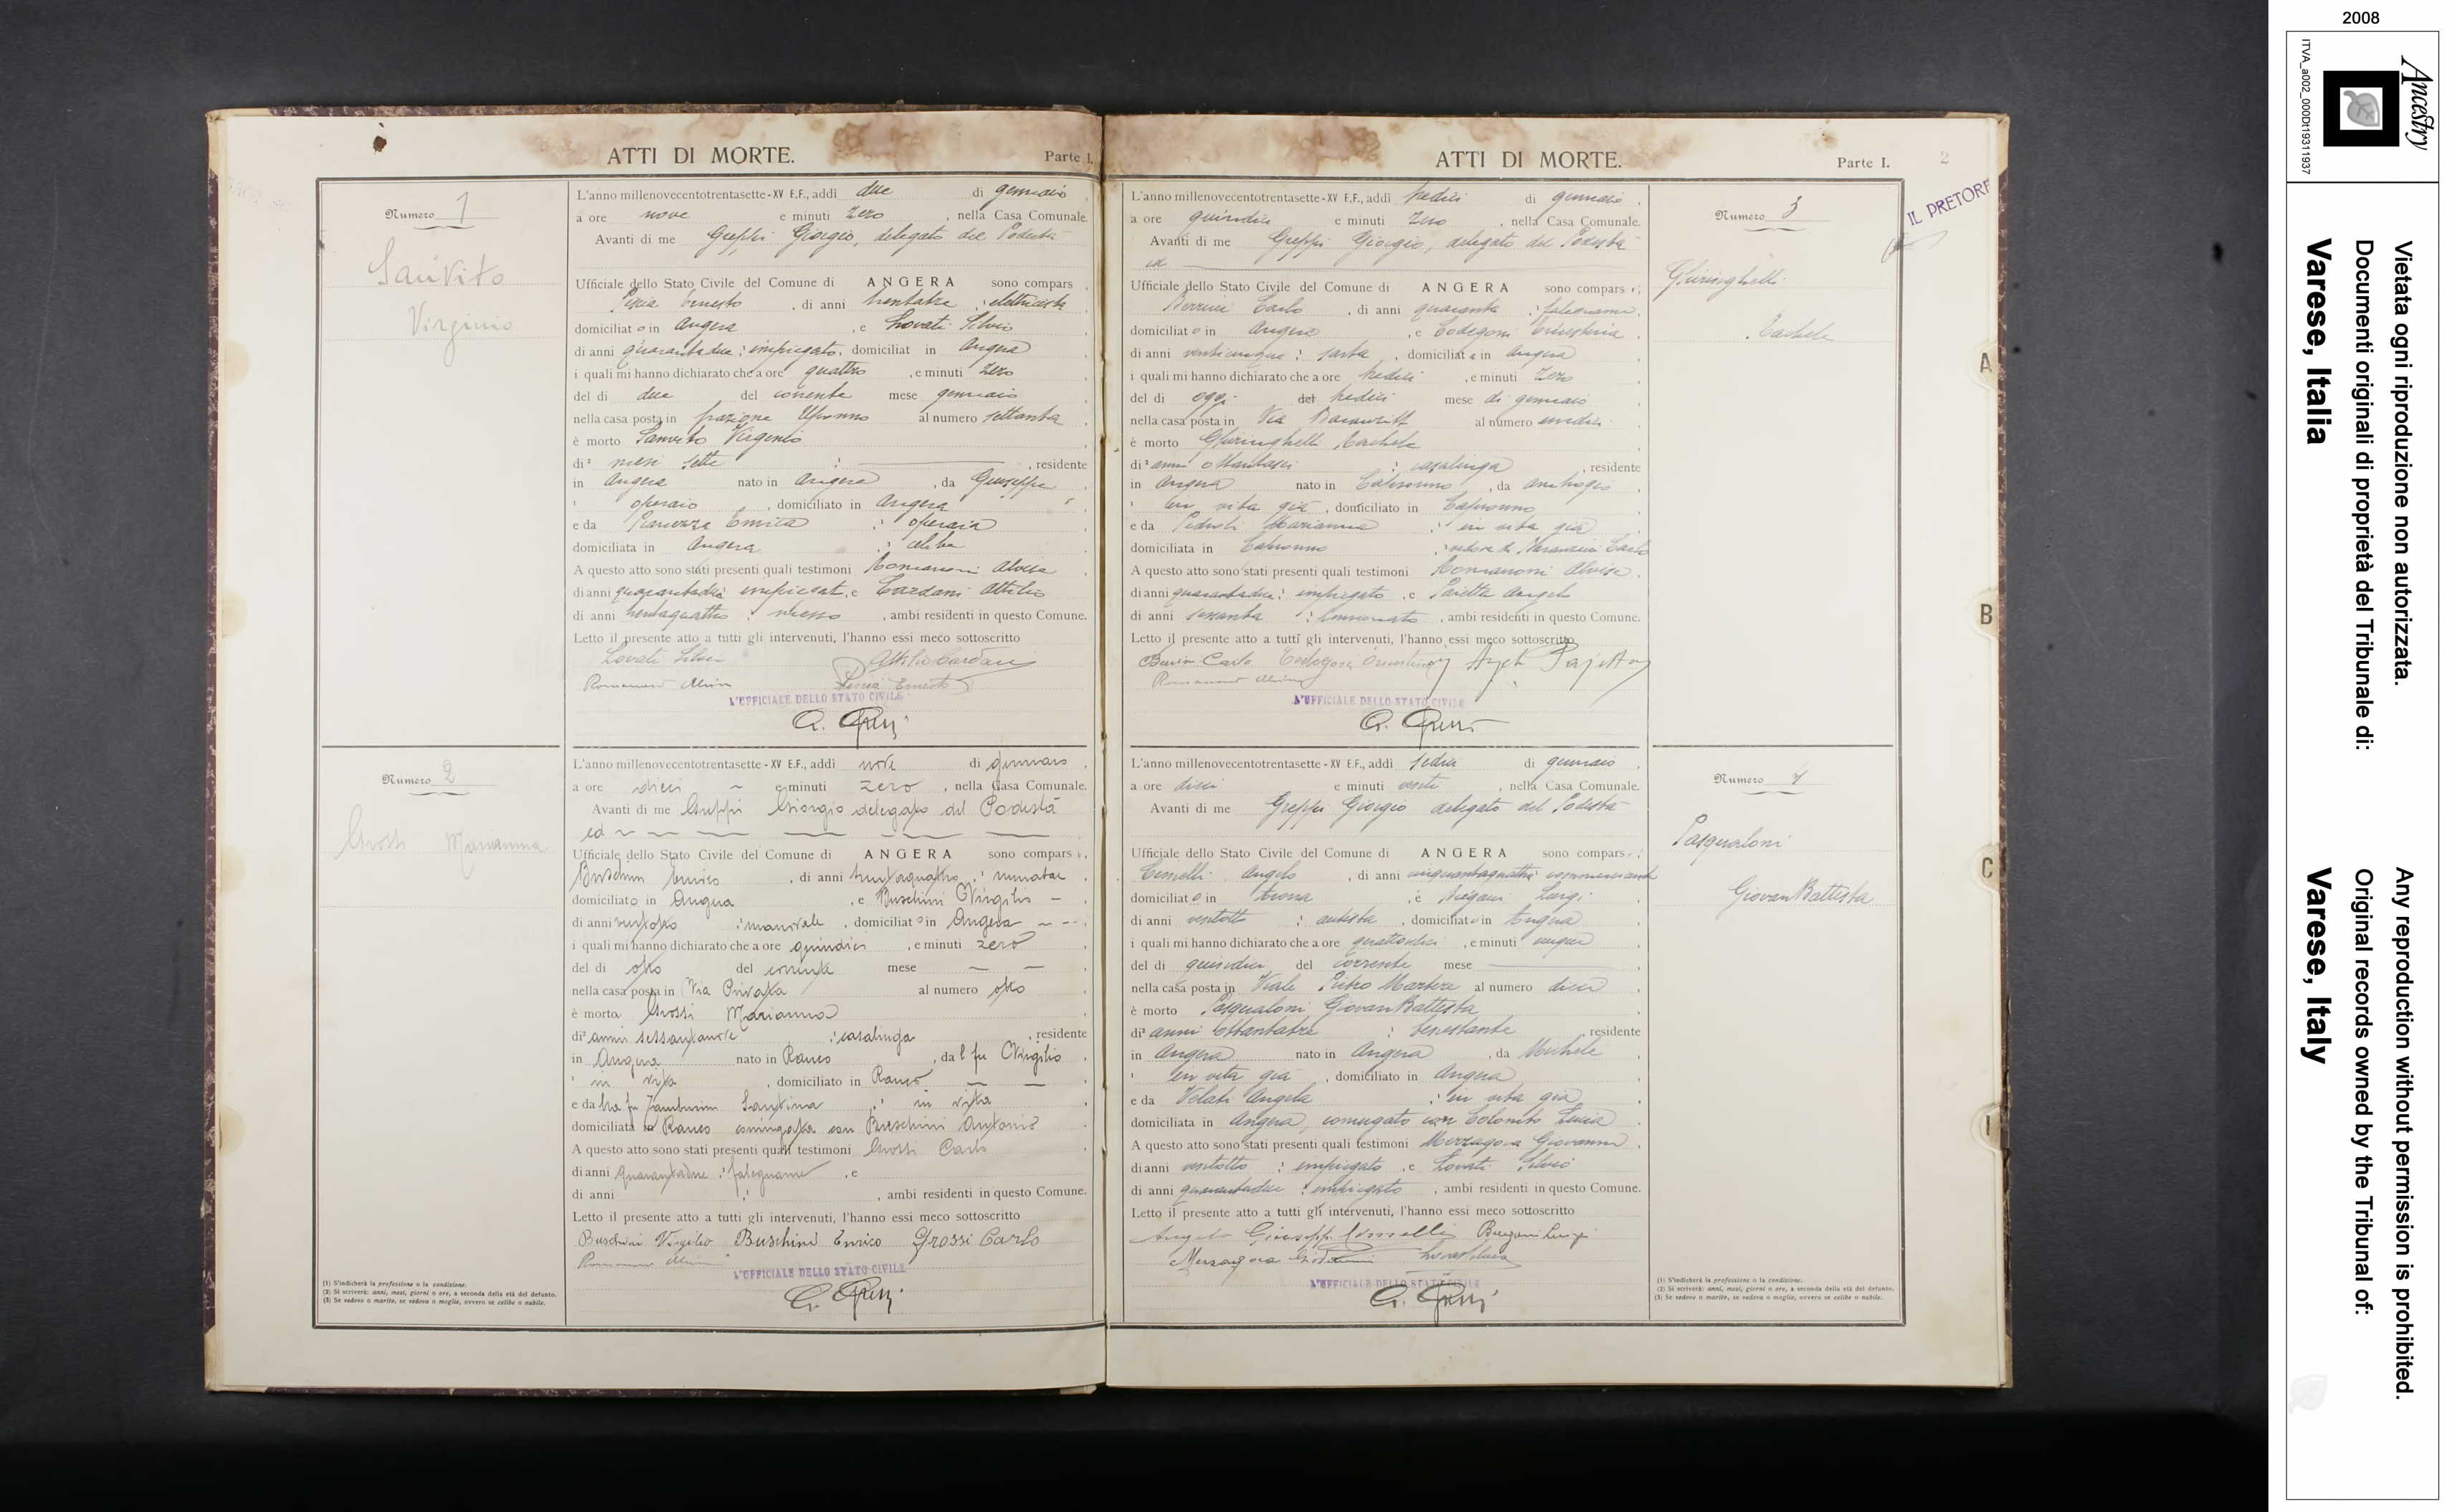 ATTI DI MORTE.
Parte I.
Numero 1
SanVito
Virginio
L'anno millenovecentotrentasette - XV E.F., addì due di gennaio
a ore nove e minuti zero, nella Casa Comunale.
Avanti di me Greppi Giorgio, delegato del Podestà
Ufficiale dello Stato Civile del Comune di ANGERA sono compars
Ernesto, di anni trentatre; elettricista
domiciliato in Angera, e Lovati Silvio
di anni quarantadue; impiegato, domiciliat in Angera
i quali mi hanno dichiarato che a ore quattro, e minuti zero
del dì due del corrente mese gennaio
nella casa posta in frazione al numero settanta
è morto Sanvito Virginio
di² mesi sette; residente
in Angera nato in Angera, da Giuseppe
operaio, domiciliato in Angera
e da Emilia; operaia
domiciliata in Angera; celibe
A questo atto sono stati presenti quali testimoni Romanoni Alvise
di anni quarantadue impiegato, e Cardani Attilio
di anni trentaquattro; messo, ambi residenti in questo Comune.
Letto il presente atto a tutti gli intervenuti, l'hanno essi meco sottoscritto
Lovati Silvio Attilio Cardani
Ernesto
L'UFFICIALE DELLO STATO CIVILE
G. Greppi
Numero 2
Grossi Marianna
L'anno millenovecentotrentasette - XV E.F., addì nove di gennaio
a ore dieci e minuti zero, nella Casa Comunale.
Avanti di me Greppi Giorgio delegato del Podestà
ed
Ufficiale dello Stato Civile del Comune di ANGERA sono compars i,
Buschini Enrico, di anni trentaquattro;
domiciliato in Angera, e Buschini Virgilio
di anni ventotto; manovale, domiciliato in Angera
i quali mi hanno dichiarato che a ore quindici, e minuti zero
del dì otto del corrente mese
nella casa posta in Via Privata al numero otto
è morta Grossi Marianna
di² anni sessantanove; casalinga, residente
in Angera nato in Ranco, dal fu Virgilio
in vita, domiciliato in Ranco
e da la fu Tamborini Santina; in vita
domiciliata in Ranco coniugata con Buschini Antonio
A questo atto sono stati presenti quali testimoni Grossi Carlo
di anni quarantadue; falegname, e
di anni ; , ambi residenti in questo Comune.
Letto il presente atto a tutti gli intervenuti, l'hanno essi meco sottoscritto
Buschini Virgilio Buschini Enrico Grossi Carlo
L'UFFICIALE DELLO STATO CIVILE
G. Greppi
(1) S'indicherà la professione o la condizione.
(2) Si scriverà: anni, mesi, giorni o ore, a seconda della età del defunto.
(3) Se vedovo o marito, se vedova o moglie, ovvero se celibe o nubile.
ATTI DI MORTE.
Parte I.
2
IL PRETORE
Numero 3
Ghiringhelli
Rachele
L'anno millenovecentotrentasette - XV E.F., addì tredici di gennaio
a ore quindici e minuti zero, nella Casa Comunale.
Avanti di me Greppi Giorgio, delegato del Podestà
ed
Ufficiale dello Stato Civile del Comune di ANGERA sono compars i,
Carlo, di anni quaranta; falegname,
domiciliato in Angera, e Codegoni Ernestina
di anni venticinque; sarta, domiciliata in Angera
i quali mi hanno dichiarato che a ore tredici, e minuti zero
del dì oggi del tredici mese di gennaio
nella casa posta in Via al numero undici
è morto Ghiringhelli Rachele
di² anni ottantasei; casalinga, residente
in Angera nato in Capronno, da Ambrogio
in vita già, domiciliato in Capronno
e da Marianna; in vita già
domiciliata in Capronno; vedova di Carlo
A questo atto sono stati presenti quali testimoni Romanoni Alvise
di anni quarantadue; impiegato, e Paietta Angelo
di anni sessanta; pensionato, ambi residenti in questo Comune.
Letto il presente atto a tutti gli intervenuti, l'hanno essi meco sottoscritto
Carlo Codegoni Ernestina
L'UFFICIALE DELLO STATO CIVILE
G. Greppi
Numero 4
Pasqualoni
Giovan Battista
L'anno millenovecentotrentasette - XV E.F., addì sedici di gennaio
a ore dieci e minuti venti, nella Casa Comunale.
Avanti di me Greppi Giorgio delegato del Podestà
Ufficiale dello Stato Civile del Comune di ANGERA sono compars i
Angelo, di anni cinquantaquattro commerciante
domiciliato in Arona, e Luigi
di anni ventotto; autista, domiciliato in Angera
i quali mi hanno dichiarato che a ore quattordici, e minuti cinque
del dì quindici del corrente mese
nella casa posta in Viale Pietro Martire al numero dieci
è morto Pasqualoni Giovan Battista
di² anni ottantatre; benestante, residente
in Angera nato in Angera, da Michele
in vita già, domiciliato in Angera
e da Velati Angela; in vita già
domiciliata in Angera, coniugato con Colombo Lucia
A questo atto sono stati presenti quali testimoni Merzagora Giovanni
di anni ventotto; impiegato, e Lovati Silvio
di anni quarantadue; impiegato, ambi residenti in questo Comune.
Letto il presente atto a tutti gli intervenuti, l'hanno essi meco sottoscritto
Angelo Giuseppe Luigi
Merzagora
L'UFFICIALE DELLO STATO CIVILE
G. Greppi
(1) S'indicherà la professione o la condizione.
(2) Si scriverà: anni, mesi, giorni o ore, a seconda della età del defunto.
(3) Se vedovo o marito, se vedova o moglie, ovvero se celibe o nubile.
A
B
C
I
2008
Ancestry
ITVA_a002_000Dt19311937
Vietata ogni riproduzione non autorizzata.
Documenti originali di proprietà del Tribunale di:
Varese, Italia
Any reproduction without permission is prohibited.
Original records owned by the Tribunal of:
Varese, Italy